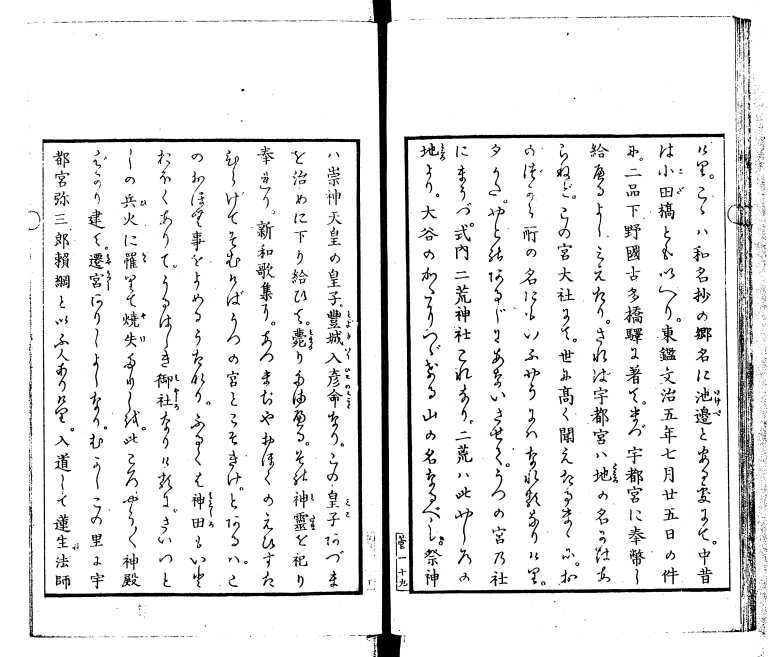 けり。こゝハ和名抄の郷名に池邊とある処にて。中昔
は小田橋とも以へり。東鑑文治五年七月廿五日の件
に。二品下野國古多橋驛に著て。まづ宇都宮に奉幣し
給へるよしミえたり。されば宇都宮ハ地の名にはあ
らねど。この宮大社にて。世に高く聞えたるまゝに。お
のづから所の名にもいふやうにハなれるなりけり。
夕かた。やどれるあるじにあないさせて。うつの宮乃社
にまうづ。式内二荒神社これなり。二荒ハ此やしろの
地より。大谷のかたつゞける山の名なるべし。祭神
一十九
ハ崇神天皇の皇子。豊城入彦命なり。この皇子あづま
を治めに下り給ひて。薨りたまへる。その神靈を祀り
奉れり。新和歌集に。あつまぢやおほくのえひすた
ひらげてそむけばうつの宮とこそきけ。とあるハこ
のおほん事をよめるうたなり。ふるくは神田もいと
おほくありて。うるはしき御社なりけるに。さいつと
しの兵火に罹りて焼失たりしを。此ころやうやく神殿
ばかり建て。遷宮ありしよしなり。むかしこの里に宇
都宮弥三郎頼綱と以ふ人ありけり。入道して蓮生法師